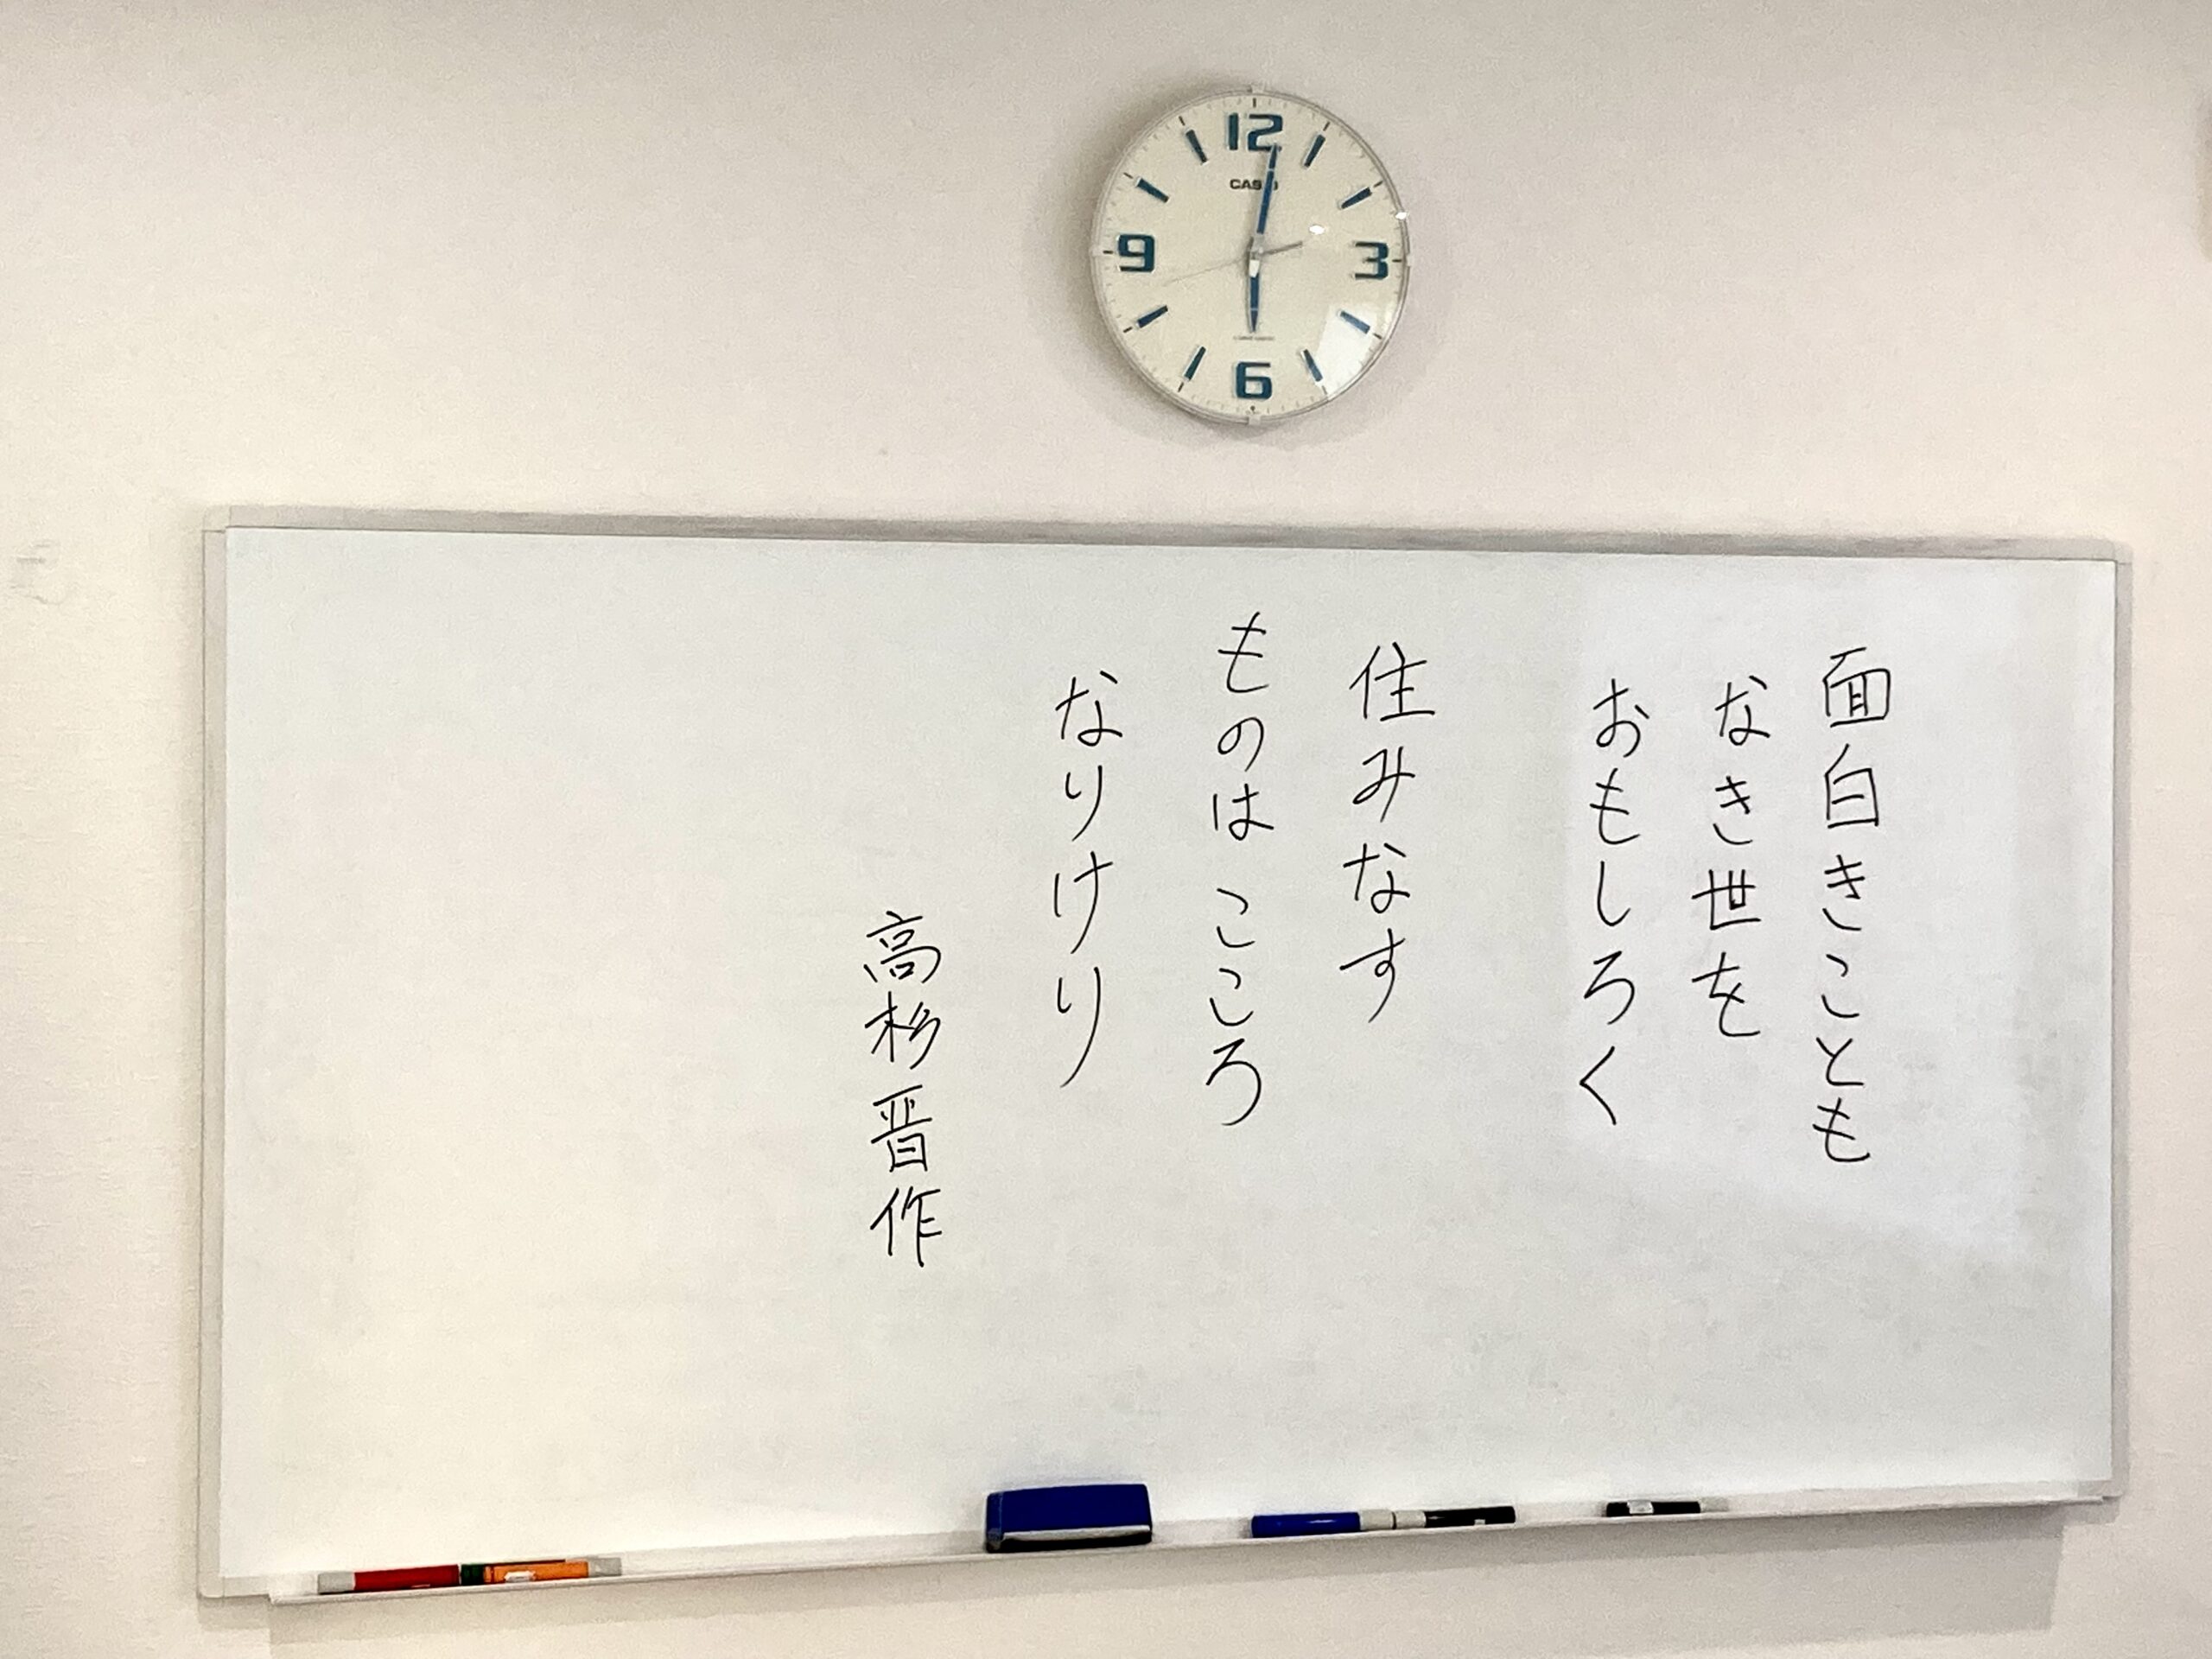 12
CASIO
9
3
6
面白きことも
なき世を
おもしろく
住みなす
ものはこころ
なりけり
高杉晋作